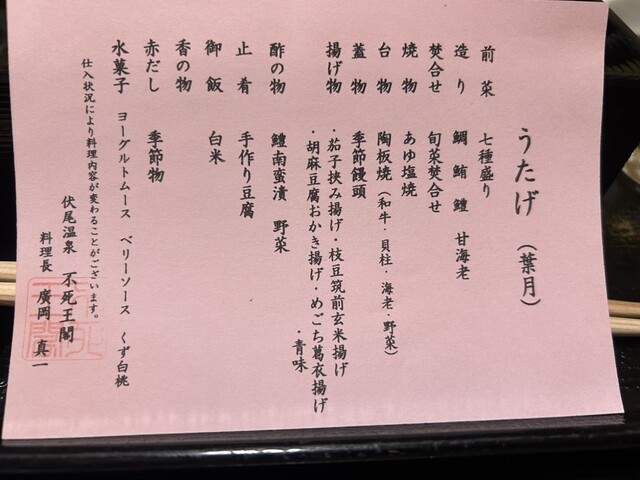 うたげ（葉月）
前菜　七種盛り
造り　鯛　鮪　鱧　甘海老
焚合せ　旬菜焚合せ
焼物　あゆ塩焼
台物　陶板焼（和牛・貝柱・海老・野菜）
蓋物　季節饅頭
揚げ物　・茄子挟み揚げ・枝豆筑前玄米揚げ
・胡麻豆腐おかき揚げ・めごち葛衣揚げ
・青味
酢の物　鱧南蛮漬　野菜
止肴　手作り豆腐
御飯　白米
香の物　季節物
赤だし
水菓子　ヨーグルトムース　ベリーソース　くず白桃
仕入状況により料理内容が変わることがございます。
伏尾温泉　不死王閣
料理長　廣岡　真一